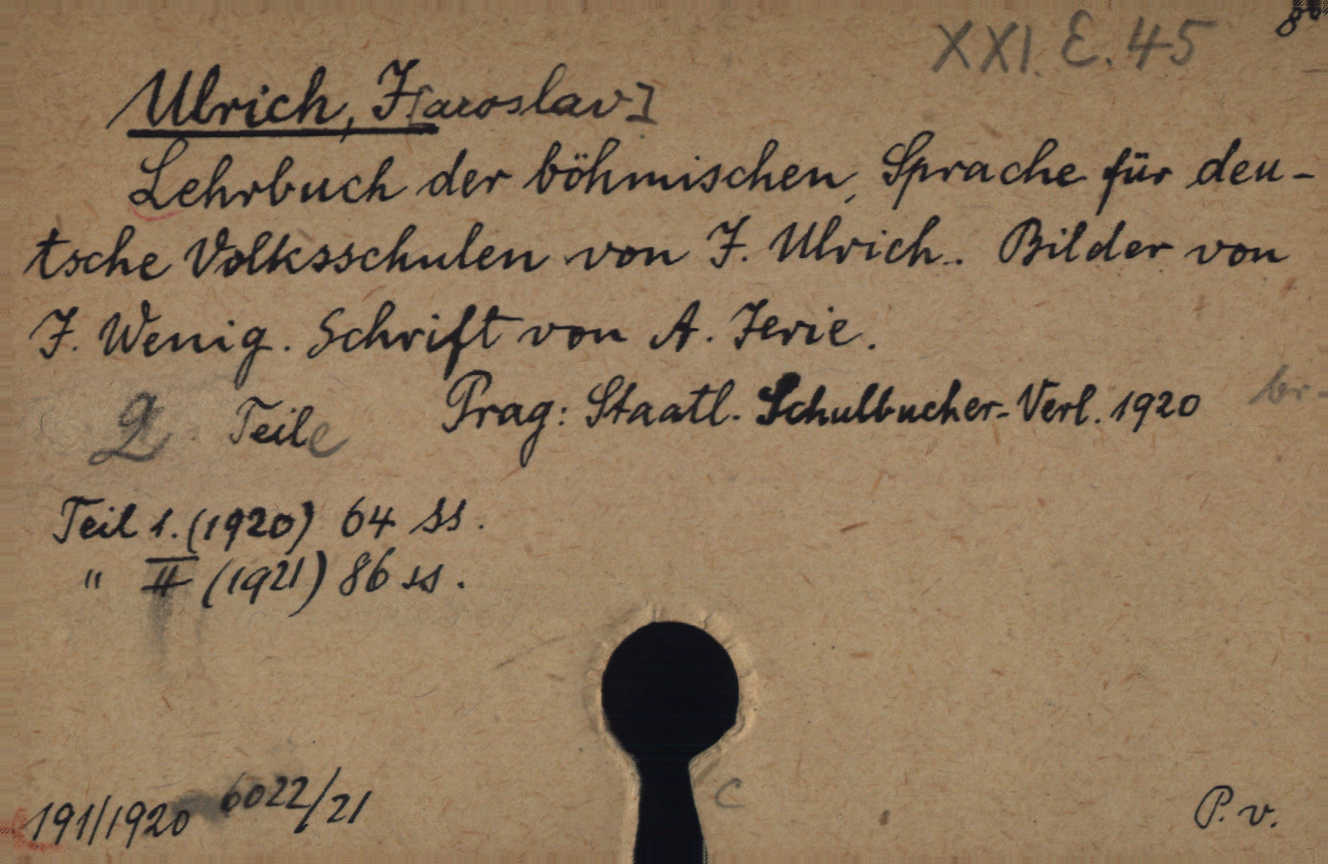 XXI. E. 45
8°
Ulrich, J[aroslav]
Lehrbuch der böhmischen, Sprache für deu-
tsche Volksschulen von J. Ulrich. Bilder von
J. Wenig. Schrift von A. Jerie.
2 Teile Prag: Staatl. Schulbucher-Verl. 1920 br.
Teil 1. (1920) 64 ss.
" II (1921) 86 ss.
191/1920 6022/21
c
P. v.